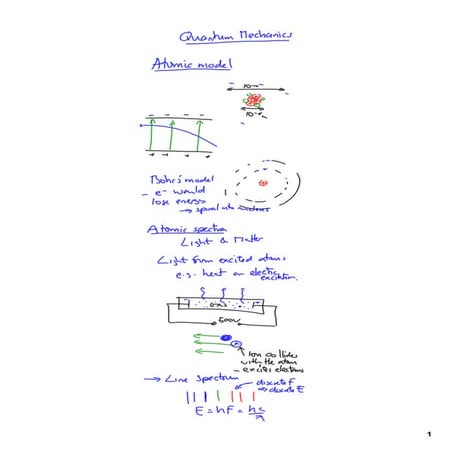 Quantum Mechanics
Atomic model
Bohr's model
– e⁻ would
lose energy
→ spiral into nucleus
Atomic spectra
Light & Matter
Light from excited atoms
e.g. heat or electric
excitation.
Gas
500V
Ion collides
with the atom
– excites electrons
→ Line Spectrum
discrete F
⇒ discrete E
E = hF = hc/λ
1